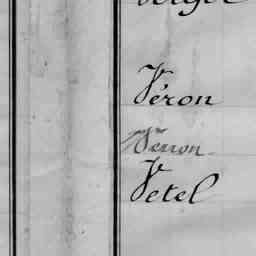 Véron
Venon
Vetel